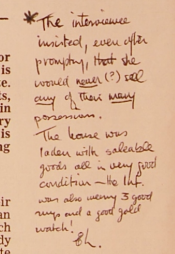 *The interviewee
insisted, even after
prompting, that she
would never (?) sell
any of their many
possessions.
The house was
laden with saleable
goods all in very good
condition - He Inf.
was also wearing 3 good
rings and a good gold
watch!
or
is
ze.
ts,
in
ry
is
ng
eir
an
ch
dy
te